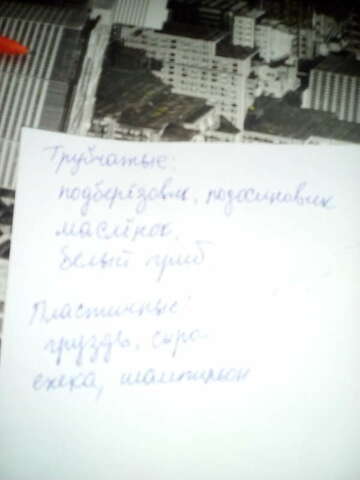 Трубчатые:
подберёзовик, подосиновик
маслёнок,
белый гриб
Пластинчные:
груздь, сыро-
ежека, шампиньон